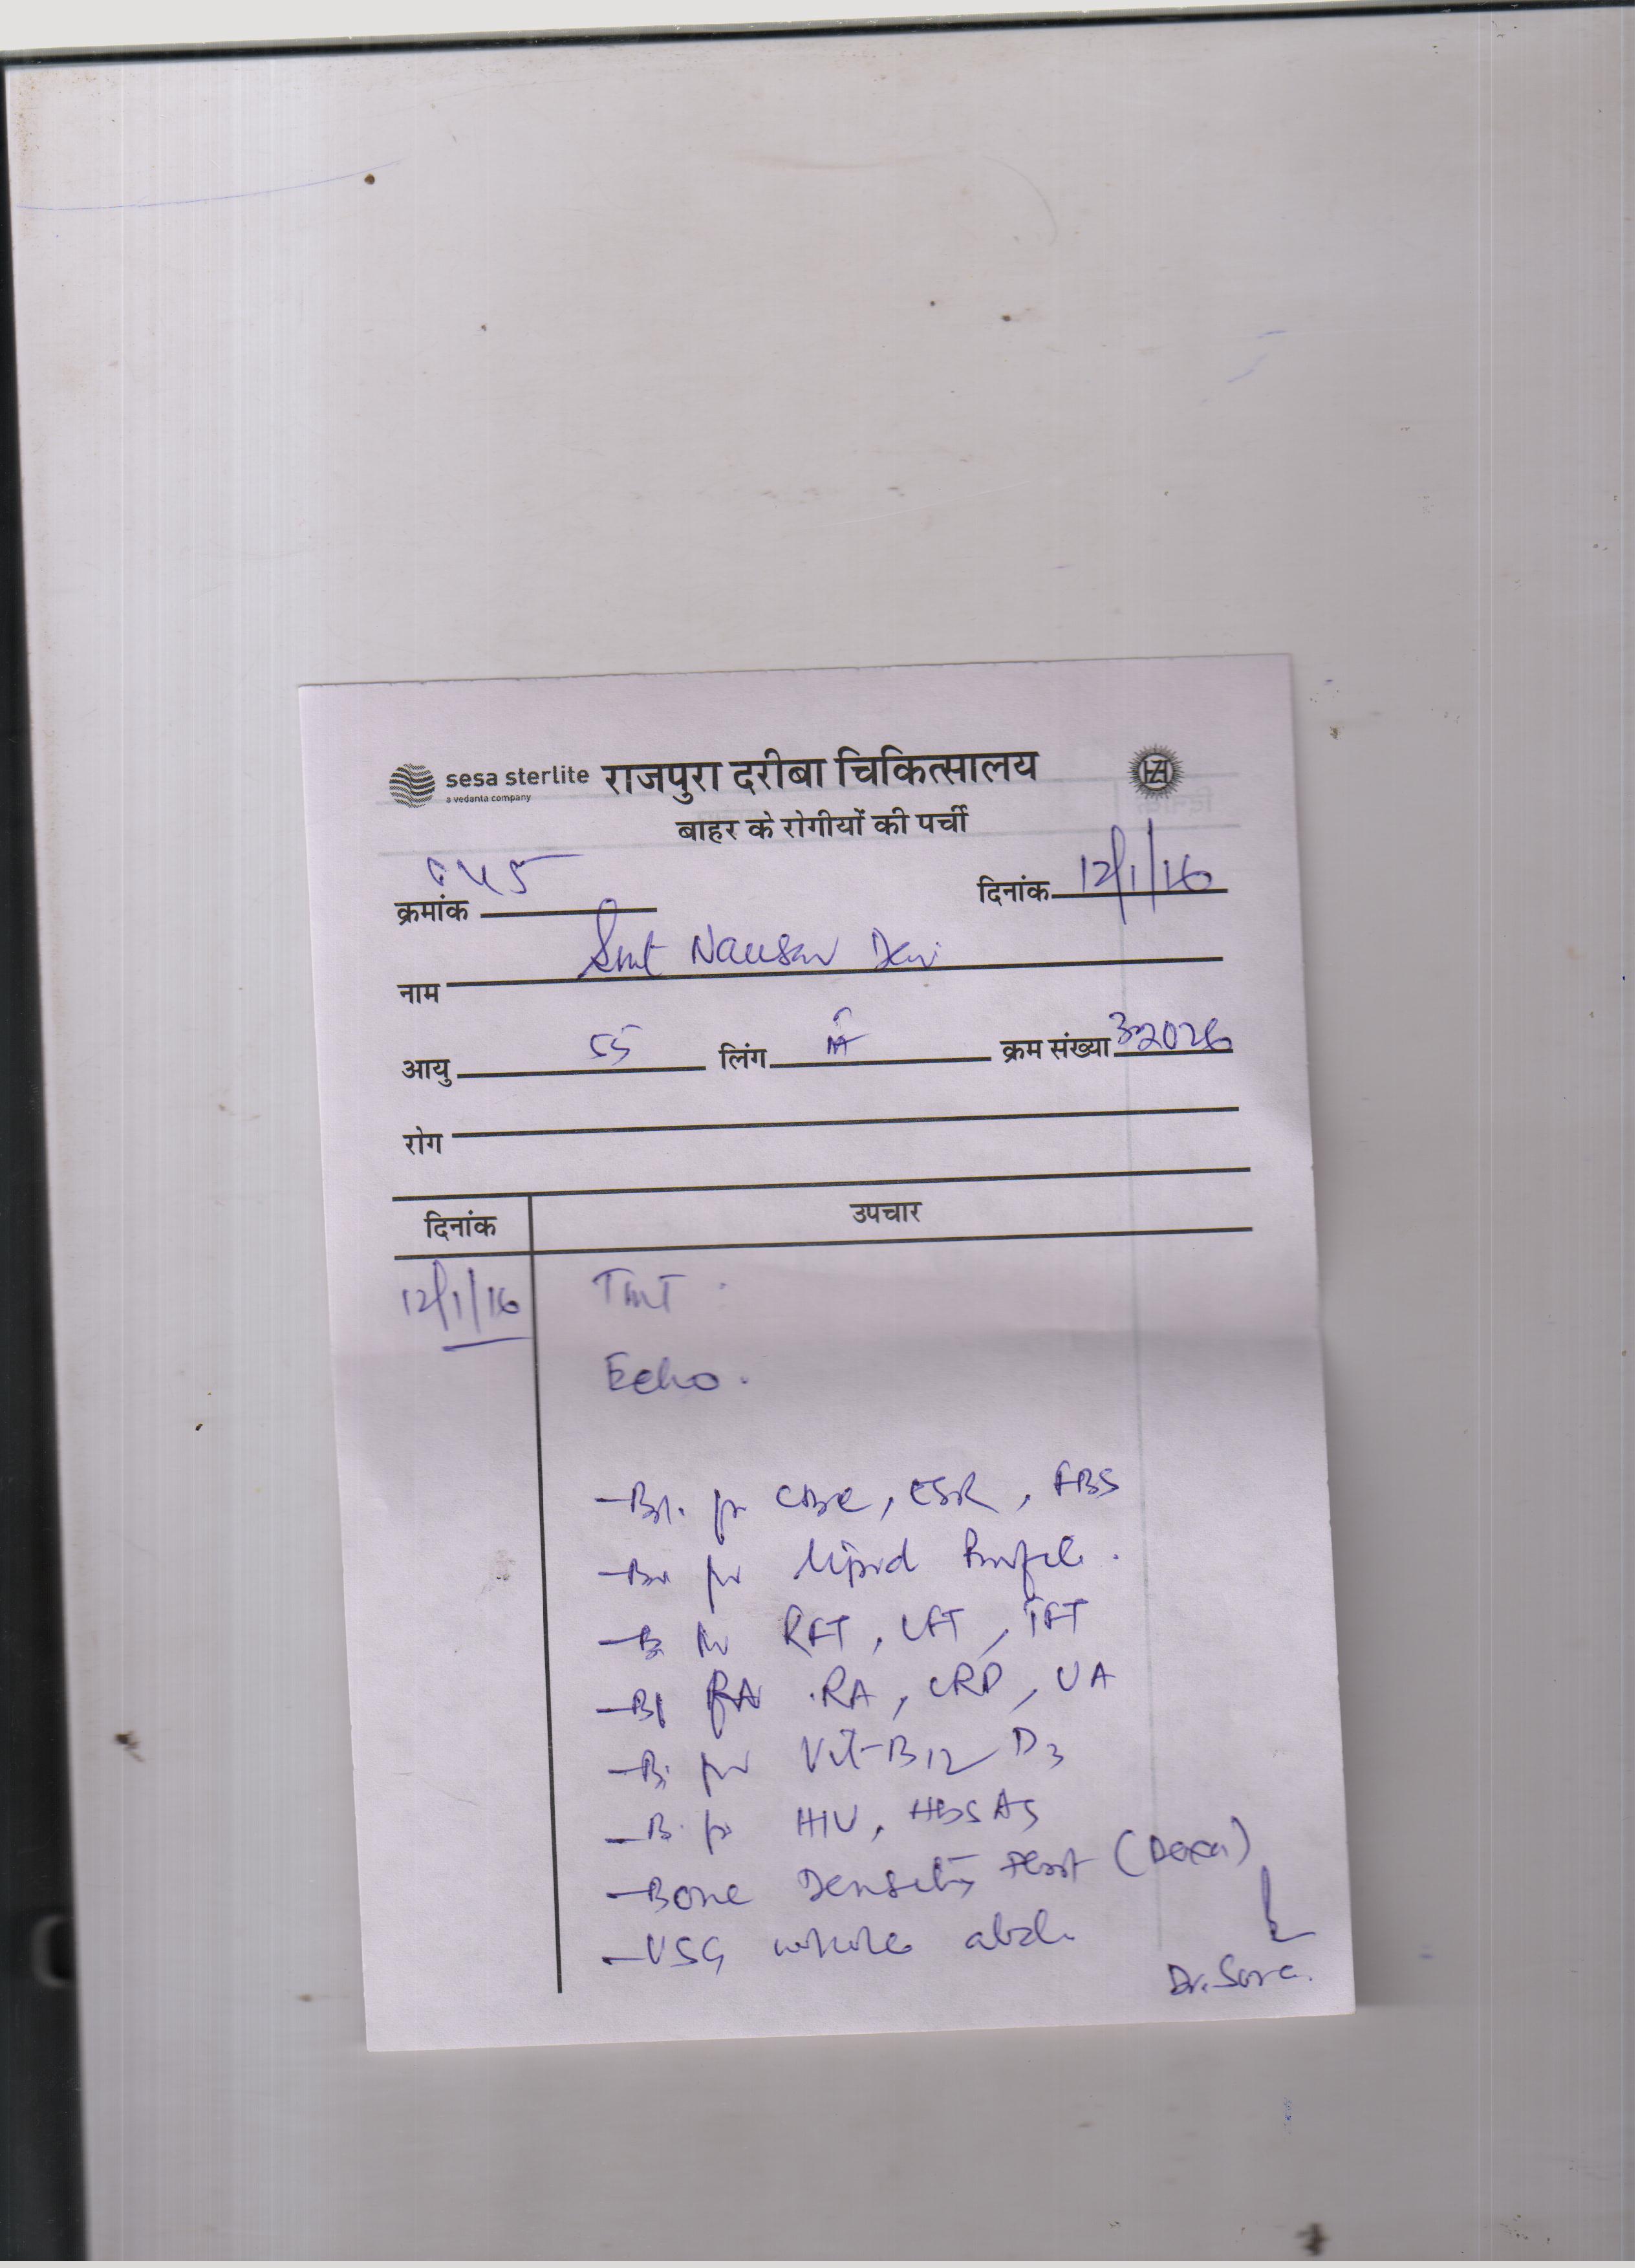 sesa sterlite राजपुरा दरीबा चिकित्सालय
a vedanta company
बाहर के रोगीयों की पर्ची
क्रमांक दिनांक 12/1/16
नाम Smt Nausar Devi
आयु 55 लिंग क्रम संख्या 32026
रोग
दिनांक उपचार
12/1/16 TMT
Echo.
- Bl. for CBC, ESR, FBS
- Bl for Lipid Profile.
- Bl for RFT, LFT, TFT
- Bl for RA, CRP, UA
- Bl for Vit-B12 D3
- Bl for HIV, HBSAg
- Bone Density test (Dexa)
- USG whole abd.
Dr.